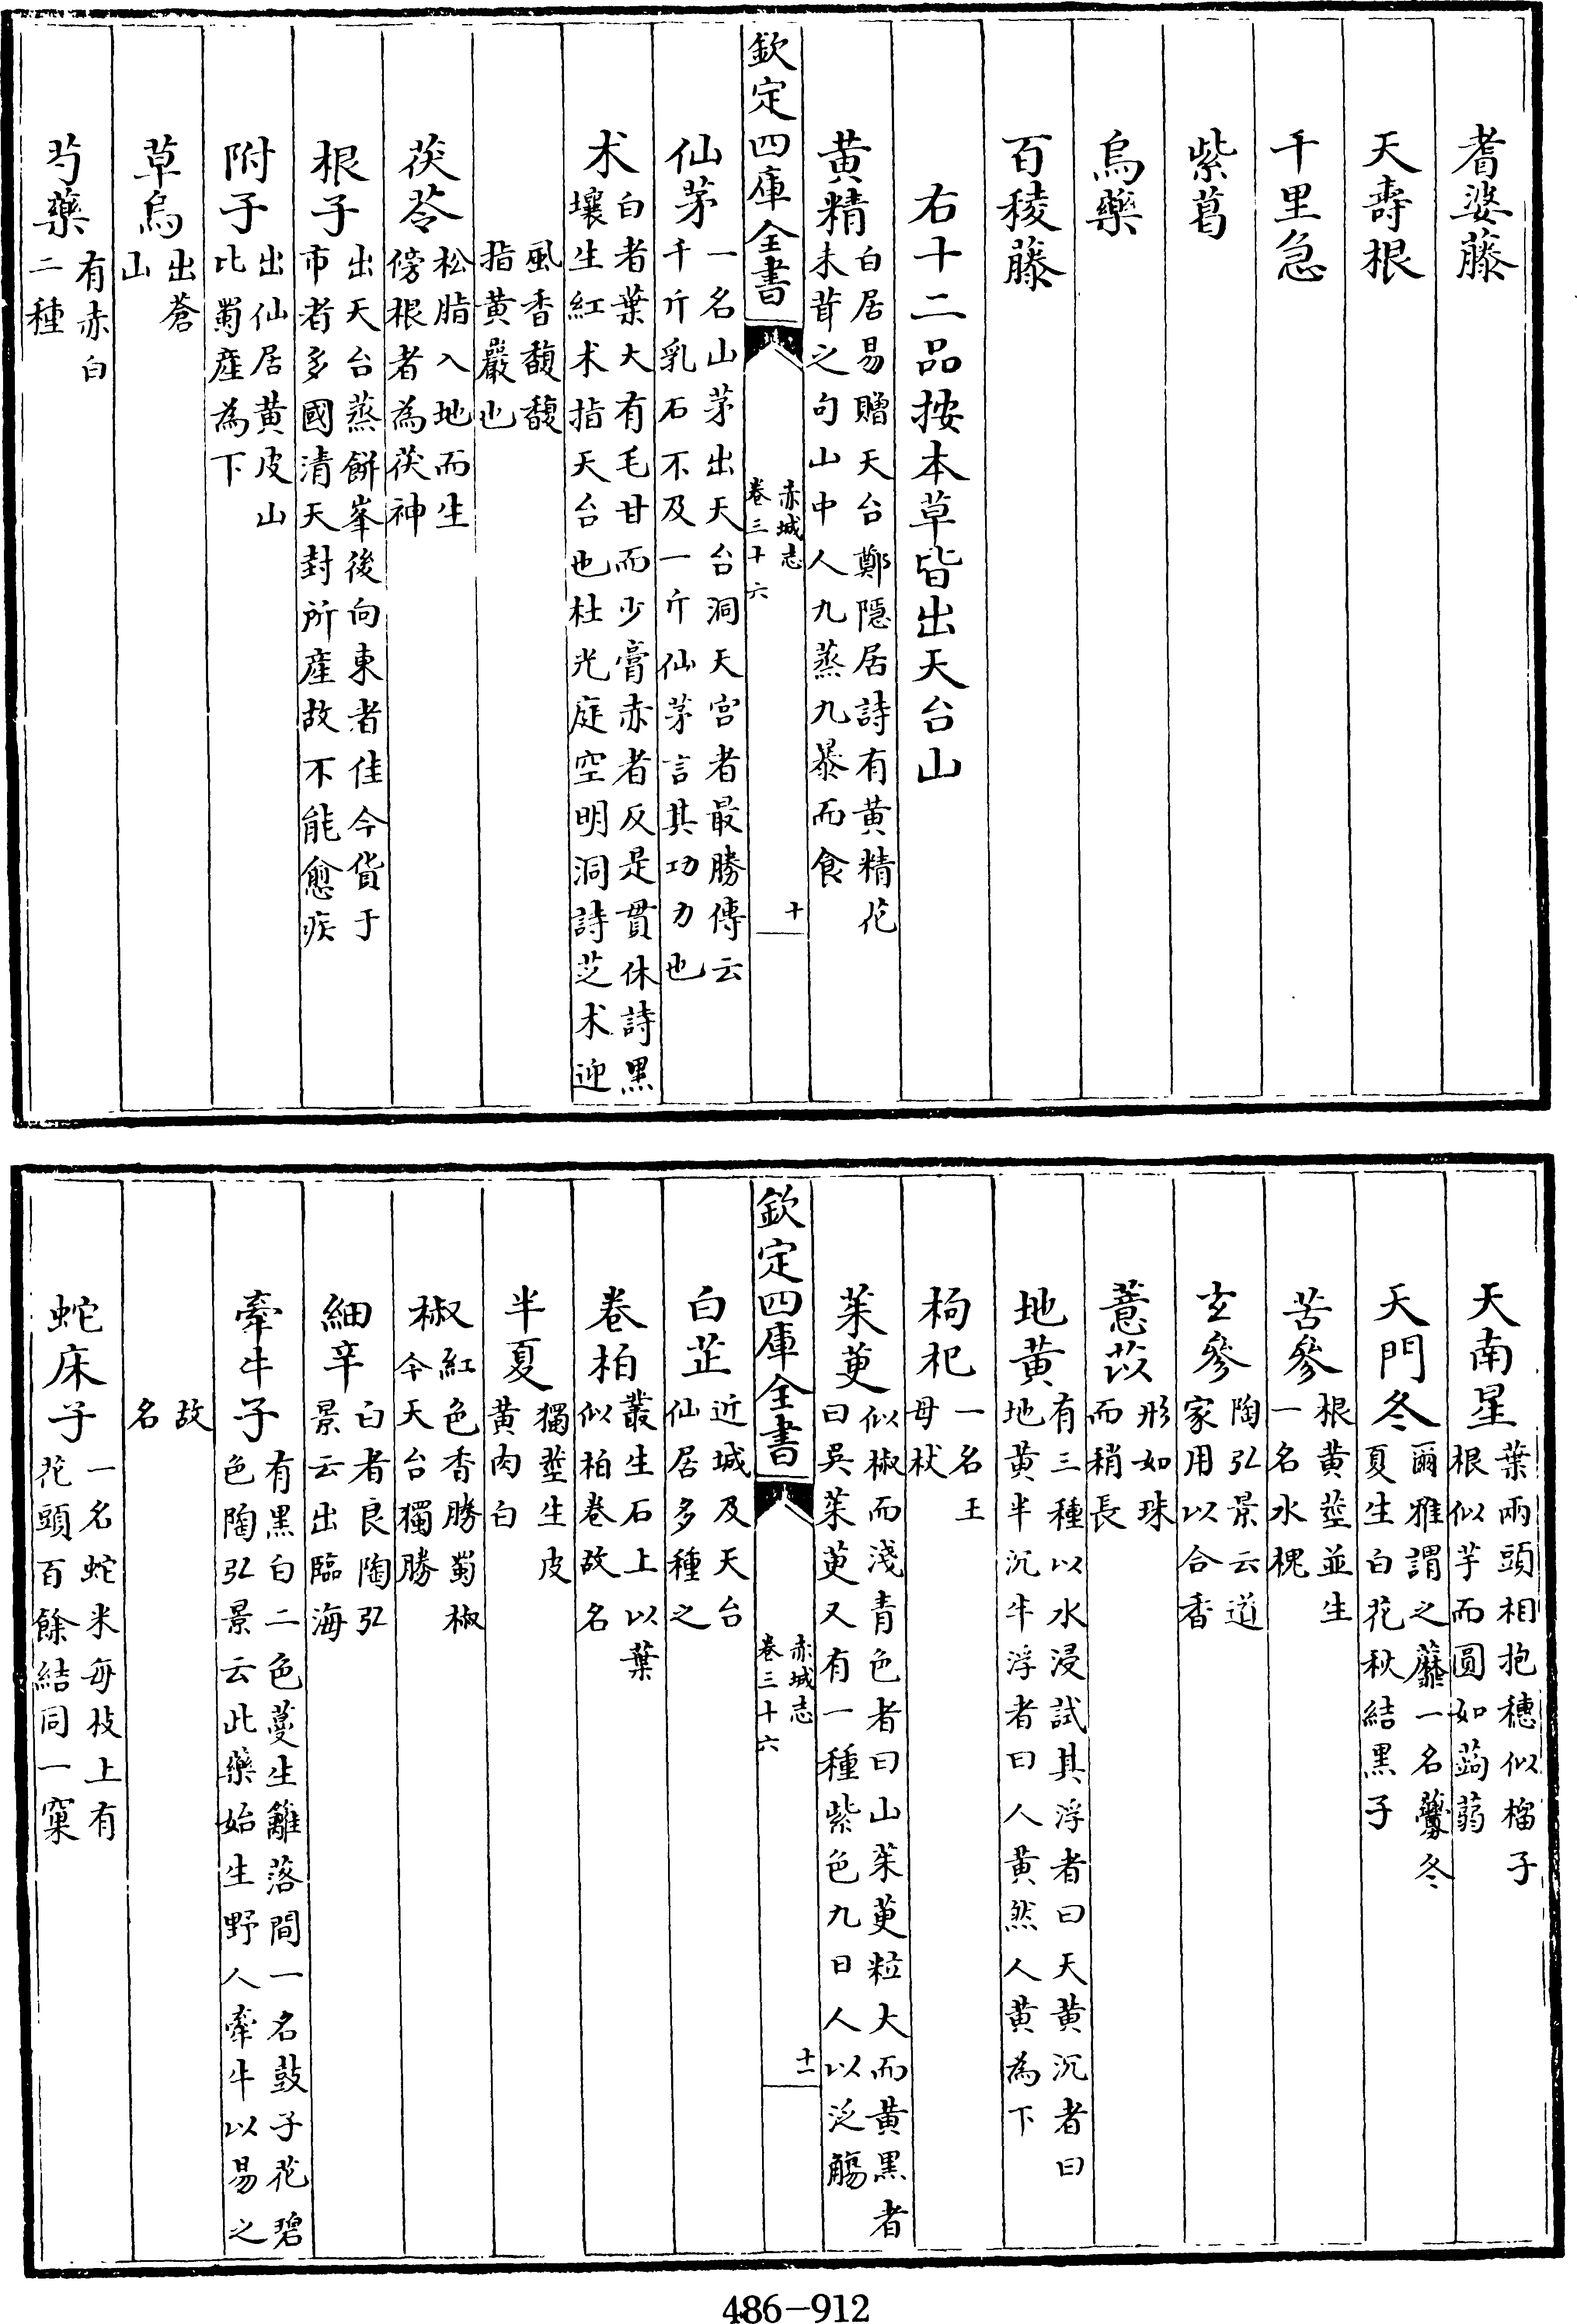 耆婆藤
天壽根
千里急
紫葛
烏藥
百稜藤
右十二品按本草皆出天台山
黄精白居易贈天台鄭隱居詩有黄精花
未茸之句山中人九蒸九暴而食
欽定四庫全書
赤城志
卷三十六
十
仙茅一名山茅出天台洞天宫者最勝傳云
千斤乳石不及一斤仙茅言其功力也
术白者葉大有毛甘而少膏赤者反是貫休詩黒
壤生紅术指天台也杜光庭空明洞詩芝术迎
風香馥馥
指黄巖也
茯苓松脂入地而生
傍根者為茯神
根子出天台蒸餅峯後向東者佳今貨于
市者多國清天封所産故不能愈疾
附子出仙居黄皮山
比蜀産為下
草烏出蒼
山
芍藥有赤白
二種
天南星葉兩頭相抱穗似榴子
根似芋而圓如蒟蒻
天門冬爾雅謂之蘼一名虋冬
夏生白花秋結黒子
苦參根黄莖並生
一名水槐
玄參陶弘景云道
家用以合香
薏苡形如珠
而稍長
地黄有三種以水浸試其浮者曰天黄沉者曰
地黄半沉半浮者曰人黄然人黄為下
枸杞一名王
母杖
茱萸似椒而淺青色者曰山茱萸粒大而黄黒者
曰吳茱萸又有一種紫色九日人以泛觴
欽定四庫全書
赤城志
卷三十六
十一
白芷近城及天台
仙居多種之
卷柏叢生石上以葉
似柏卷故名
半夏獨莖生皮
黄肉白
椒紅色香勝蜀椒
今天台獨勝
細辛白者良陶弘
景云出臨海
牽牛子有黒白二色蔓生籬落間一名鼓子花碧
色陶弘景云此藥始生野人牽牛以易之
故
名
蛇床子一名蛇米每枝上有
花頭百餘結同一窠
486-912